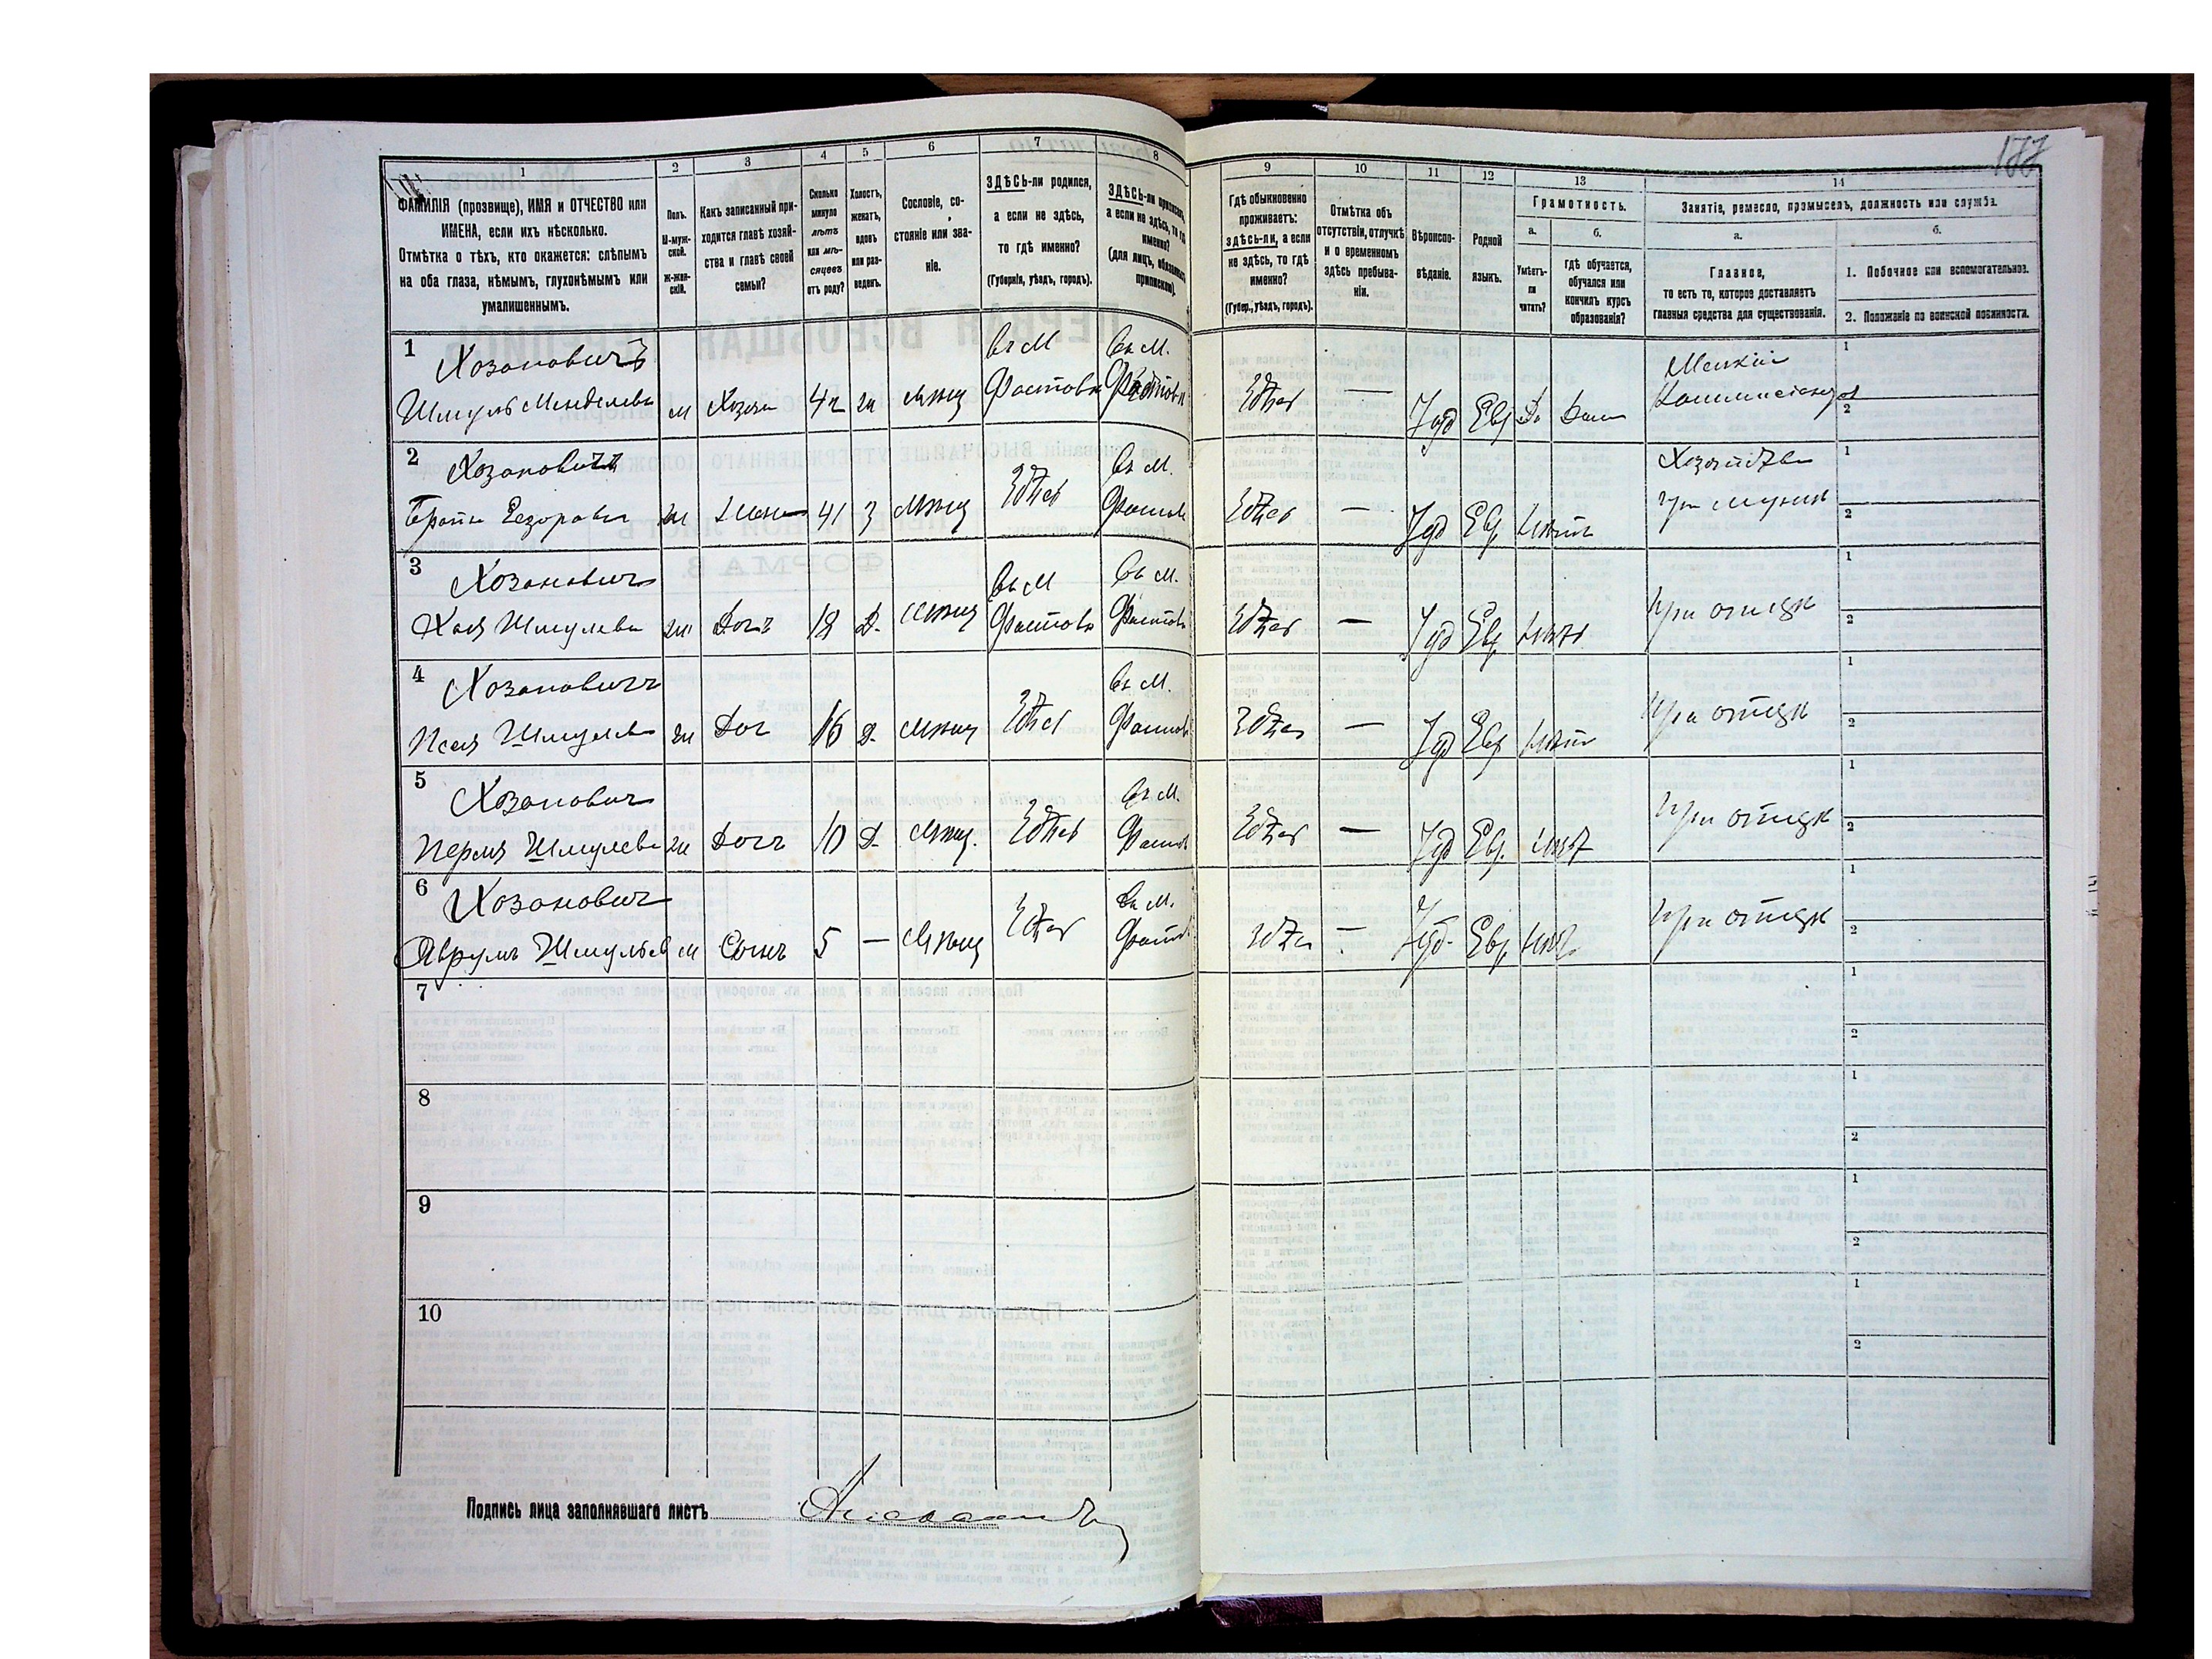 187
1
2
3
4
5
6
7
8
ФАМИЛІЯ (прозвище), ИМЯ и ОТЧЕСТВО или
ИМЕНА, если ихъ нѣсколько.
Отмѣтка о тѣхъ, кто окажется: слѣпымъ
на оба глаза, нѣмымъ, глухонѣмымъ или
умалишеннымъ.
Полъ.
М-муж-
ской.
ж-жен-
скій.
Какъ записанный при-
ходится главѣ хозяй-
ства и главѣ своей
семьи?
Сколько
минуло
лѣтъ
или мѣ-
сяцевъ
отъ роду?
Холостъ,
женатъ,
вдовъ
или раз-
веденъ.
Сословіе, со-
стояніе или зва-
ніе.
ЗДѢСЬ-ли родился,
а если не здѣсь,
то гдѣ именно?
(Губернія, уѣздъ, городъ).
ЗДѢСЬ-ли приписанъ,
а если не здѣсь, то гдѣ
именно?
(для лицъ, обязанныхъ
припискою).
9
10
11
12
13
14
Гдѣ обыкновенно
проживаетъ:
здѣсь-ли, а если
не здѣсь, то гдѣ
именно?
(Губер., уѣздъ, городъ).
Отмѣтка объ
отсутствіи, отлучкѣ
и о временномъ
здѣсь пребыва-
ніи.
Вѣроиспо-
вѣданіе.
Родной
языкъ.
Грамотность.
а.
б.
Умѣетъ-
ли
читать?
Гдѣ обучается,
обучался или
кончилъ курсъ
образованія?
Занятіе, ремесло, промыселъ, должность или служба.
а.
б.
Главное,
то есть то, которое доставляетъ
главныя средства для существованія.
1. Побочное или вспомогательное.
2. Положеніе по воинской повинности.
1 Хозановичъ Въ М Въ М. Мелкій 1
Шмуль Менделевъ м Хозяи 42 ж Мѣщ Фастовѣ Фастовѣ Здѣсь — Іуд Евр Да Дома Коммисіонеръ 2
2 Хозановичъ Въ М. Хозяйства 1
ж Жена 41 З Мѣщ Здѣсь Фастов Здѣсь — Іуд Евр Нѣтъ при мужѣ 2
3 Хозанович Въ М Въ М. 1
Хая Шмулева ж Дочъ 18 Д. Мѣщ Фастовѣ Фастовѣ Здѣсь — Іуд Евр Нѣтъ при отцѣ 2
4 Хозановичъ Въ М. 1
Песя Шмулев ж Доч 16 Д. Мѣщ Здѣсь Фастов Здѣсь — Іуд Евр Нѣт при отцѣ 2
5 Хозанович Въ М. 1
Перля Шмулева ж Дочь 10 Д. Мѣщ. Здѣсь Фастов Здѣсь — Іуд Евр. Нѣт при отцѣ 2
6 Хозанович Въ М. 1
Аврумъ Шмулѣв м Сынъ 5 — Мѣщ Здѣсь Фастов Здѣс — Іуд. Евр Нѣт при отцѣ 2
7 1
2
8 1
2
9 1
2
10 1
2
Подпись лица заполнявшаго листъ